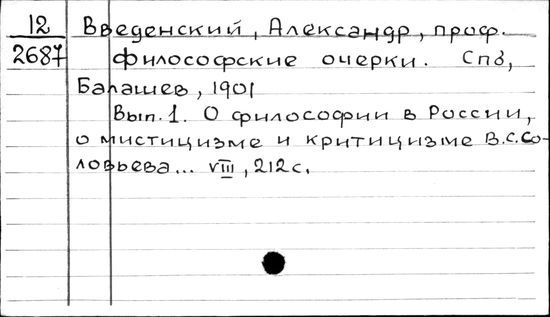 12 Введенский, Александр, проф.
2687 Философские очерки. Спб,
Балашев, 1901
Вып. 1. О философии в России,
о мистицизме и критицизме В.С.Со-
ловьева... VIII, 212 с.